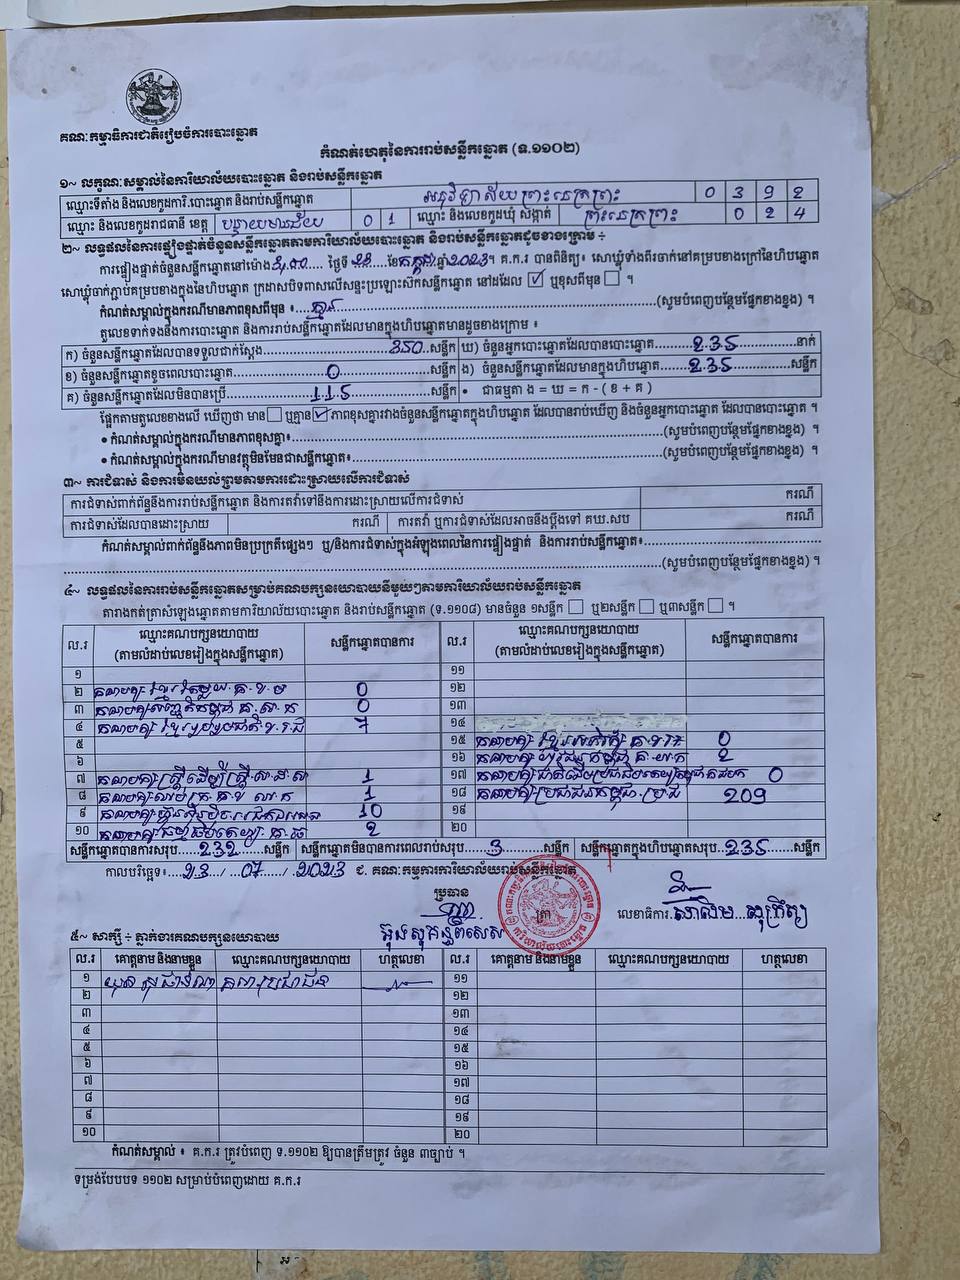 គណៈកម្មាធិការជាតិរៀបចំការបោះឆ្នោត
កំណត់ហេតុនៃការរាប់សន្លឹកឆ្នោត (ទ.១១០២)
១~ លក្ខណៈសម្គាល់នៃការិយាល័យបោះឆ្នោត និងរាប់សន្លឹកឆ្នោត
ឈ្មោះទីតាំង និងលេខកូដការិ.បោះឆ្នោត និងរាប់សន្លឹកឆ្នោត អនុវិទ្យាល័យព្រះនេត្រព្រះ 0 3 9 2
ឈ្មោះ និងលេខកូដរាជធានី ខេត្ត បន្ទាយមានជ័យ 0 1 ឈ្មោះ និងលេខកូដឃុំ សង្កាត់ ព្រះនេត្រព្រះ 0 2 4
២~ លទ្ធផលនៃការផ្ទៀងផ្ទាត់ចំនួនសន្លឹកឆ្នោតតាមការិយាល័យបោះឆ្នោត និងរាប់សន្លឹកឆ្នោតដូចខាងក្រោម ÷
ការផ្ទៀងផ្ទាត់ចំនួនសន្លឹកឆ្នោតនៅម៉ោង 3,50 ថ្ងៃទី 23 ខែ កក្កដា ឆ្នាំ2023។ គ.ក.រ បានពិនិត្យ៖ សោឃ្លុំទាំងពីរចាក់នៅគម្របខាងក្រៅនៃហិបឆ្នោត
សោឃ្លុំចាក់ភ្ជាប់គម្របខាងក្នុងនៃហិបឆ្នោត ក្រដាសបិទពាសលើសន្ទះប្រឡោះស៊កសន្លឹកឆ្នោត នៅដដែល ☑ ឬខុសពីមុន ☐ ។
កំណត់សម្គាល់ក្នុងករណីមានភាពខុសពីមុន ៖ គ្មាន (សូមបំពេញបន្ថែមផ្នែកខាងខ្នង) ។
តួលេខទាក់ទងនឹងការបោះឆ្នោត និងការរាប់សន្លឹកឆ្នោតដែលមានក្នុងហិបឆ្នោតមានដូចខាងក្រោម ៖
ក) ចំនួនសន្លឹកឆ្នោតដែលបានទទួលជាក់ស្តែង 350 សន្លឹក ឃ) ចំនួនអ្នកបោះឆ្នោតដែលបានបោះឆ្នោត 235 នាក់
ខ) ចំនួនសន្លឹកឆ្នោតខូចពេលបោះឆ្នោត 0 សន្លឹក ង) ចំនួនសន្លឹកឆ្នោតដែលមានក្នុងហិបឆ្នោត 235 សន្លឹក
គ) ចំនួនសន្លឹកឆ្នោតដែលមិនបានប្រើ 115 សន្លឹក • ជាធម្មតា ង = ឃ = ក - ( ខ + គ )
ផ្អែកតាមតួលេខខាងលើ ឃើញថា មាន ☐ ឬគ្មាន ☑ ភាពខុសគ្នារវាងចំនួនសន្លឹកឆ្នោតក្នុងហិបឆ្នោត ដែលបានរាប់ឃើញ និងចំនួនអ្នកបោះឆ្នោត ដែលបានបោះឆ្នោត ។
• កំណត់សម្គាល់ក្នុងករណីមានភាពខុសគ្នា៖ (សូមបំពេញបន្ថែមផ្នែកខាងខ្នង) ។
• កំណត់សម្គាល់ក្នុងករណីមានវត្ថុមិនមែនជាសន្លឹកឆ្នោត៖ (សូមបំពេញបន្ថែមផ្នែកខាងខ្នង) ។
៣~ ការជំទាស់ និងការមិនយល់ព្រមតាមការដោះស្រាយលើការជំទាស់
ការជំទាស់ពាក់ព័ន្ធនឹងការរាប់សន្លឹកឆ្នោត និងការតវ៉ាទៅនឹងការដោះស្រាយលើការជំទាស់ ករណី
ការជំទាស់ដែលបានដោះស្រាយ ករណី ការតវ៉ា ឬការជំទាស់ដែលអាចនឹងប្តឹងទៅ គឃ.សប ករណី
កំណត់សម្គាល់ពាក់ព័ន្ធនឹងភាពមិនប្រក្រតីផ្សេងៗ ឬ/និងការជំទាស់ក្នុងអំឡុងពេលនៃការផ្ទៀងផ្ទាត់ និងការរាប់សន្លឹកឆ្នោត៖
(សូមបំពេញបន្ថែមផ្នែកខាងខ្នង) ។
៤~ លទ្ធផលនៃការរាប់សន្លឹកឆ្នោតសម្រាប់គណបក្សនយោបាយនីមួយៗតាមការិយាល័យរាប់សន្លឹកឆ្នោត
តារាងកត់ត្រាសំឡេងឆ្នោតតាមការិយាល័យបោះឆ្នោត និងរាប់សន្លឹកឆ្នោត (ទ.១១០៨) មានចំនួន ១សន្លឹក ☐ ឬ២សន្លឹក ☐ ឬ៣សន្លឹក ☐ ។
ល.រ ឈ្មោះគណបក្សនយោបាយ (តាមលំដាប់លេខរៀងក្នុងសន្លឹកឆ្នោត) សន្លឹកឆ្នោតបានការ ល.រ ឈ្មោះគណបក្សនយោបាយ (តាមលំដាប់លេខរៀងក្នុងសន្លឹកឆ្នោត) សន្លឹកឆ្នោតបានការ
១ ១១
២ គណបក្ស 0 ១២
៣ គណបក្ស 0 ១៣
៤ គណបក្ស 7 ១៤
៥ ១៥ គណបក្ស 0
៦ ១៦ គណបក្ស 2
៧ គណបក្សស្ត្រីដើម្បីស្ត្រី 1 ១៧ គណបក្ស 0
៨ គណបក្ស 1 ១៨ គណបក្សប្រជាជនកម្ពុជា 209
៩ គណបក្សហ៊្វុនស៊ិនប៉ិច 10 ១៩
១០ គណបក្ស 2 ២០
សន្លឹកឆ្នោតបានការសរុប 232 សន្លឹក សន្លឹកឆ្នោតមិនបានការពេលរាប់សរុប 3 សន្លឹក សន្លឹកឆ្នោតក្នុងហិបឆ្នោតសរុប 235 សន្លឹក
កាលបរិច្ឆេទ៖ 23 / 07 / 2023 ជ. គណៈកម្មការការិយាល័យរាប់សន្លឹកឆ្នោត
ប្រធាន
ត្រា លេខាធិការ
៥~ សាក្សី ÷ ភ្នាក់ងារគណបក្សនយោបាយ
ល.រ គោត្តនាម និងនាមខ្លួន ឈ្មោះគណបក្សនយោបាយ ហត្ថលេខា ល.រ គោត្តនាម និងនាមខ្លួន ឈ្មោះគណបក្សនយោបាយ ហត្ថលេខា
១ ១១
២ ១២
៣ ១៣
៤ ១៤
៥ ១៥
៦ ១៦
៧ ១៧
៨ ១៨
៩ ១៩
១០ ២០
កំណត់សម្គាល់ ៖ គ.ក.រ ត្រូវបំពេញ ទ.១១០២ ឱ្យបានត្រឹមត្រូវ ចំនួន ៣ច្បាប់ ។
ទម្រង់បែបបទ ១១០២ សម្រាប់បំពេញដោយ គ.ក.រ